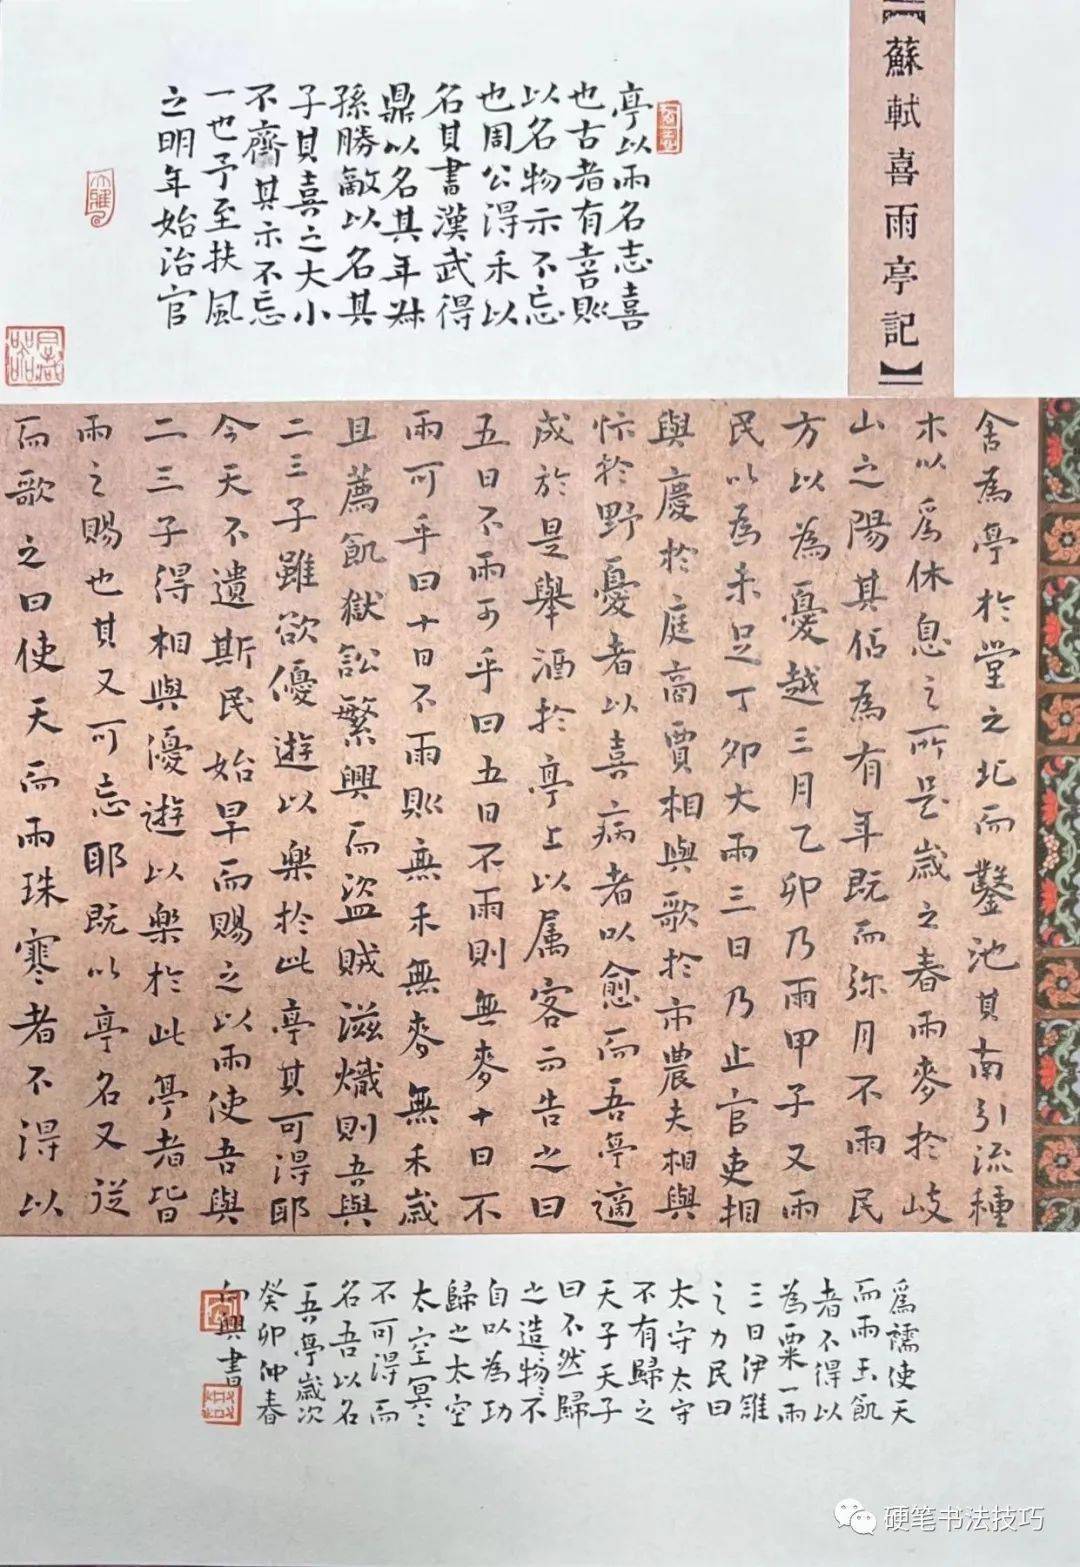 【蘇軾喜雨亭記】
亭以雨名志喜
也古者有喜則
以名物示不忘
也周公得禾以
名其書漢武得
鼎以名其年叔
孫勝敵以名其
子其喜之大小
不齊其示不忘
一也予至扶風
之明年始治官
舍為亭於堂之北而鑿池其南引流種
木以為休息之所是歲之春雨麥於岐
山之陽其佔為有年既而弥月不雨民
方以為憂越三月乙卯乃雨甲子又雨
民以為未足丁卯大雨三日乃止官吏相
與慶於庭商賈相與歌於市農夫相與
忭於野憂者以喜病者以愈而吾亭適
成於是舉酒於亭上以属客而告之曰
五日不雨可乎曰五日不雨則無麥十日不
雨可乎曰十日不雨則無禾無麥無禾歲
且薦飢獄訟繁興而盜賊滋熾則吾與
二三子雖欲優遊以樂於此亭其可得耶
今天不遺斯民始旱而賜之以雨使吾與
二三子得相與優遊以樂於此亭者皆
雨之賜也其又可忘耶既以亭名又從
而歌之曰使天而雨珠寒者不得以
為襦使天
而雨玉飢
者不得以
為粟一雨
三日伊誰
之力民曰
太守太守
不有歸之
天子天子
曰不然歸
之造物造物不
自以為功
歸之太空
太空冥冥
不可得而
名吾以名
吾亭歲次
癸卯仲春
向興書
硬笔书法技巧